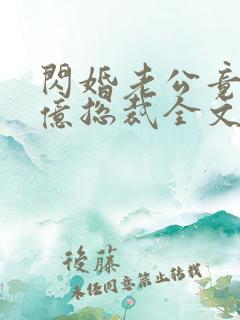 閃婚老公竟
億總裁全文
後藤
未經同意禁止轉載